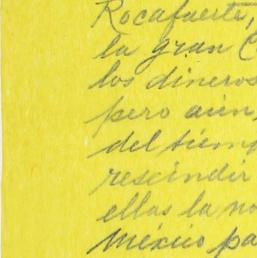 Rocafuerte,
la gran C
los dineros
pero aún,
del tiemp
rescindir
ellas la no
México pa